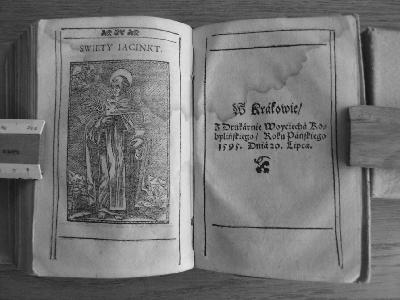 SWIĘTY IACINKT.
W Krákowie/
Z Drukárnie Woyciechá Ko⸗
bylińskiego/ Roku Páńskiego
1595. Dniá 20. Lipcá.